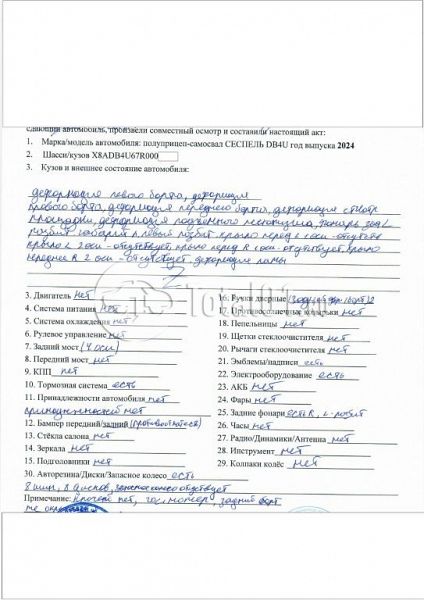 сдающий автомобиль, произвели совместный осмотр и составили настоящий акт:
1. Марка/модель автомобиля: полуприцеп-самосвал СЕСПЕЛЬ DB4U год выпуска 2024
2. Шасси/кузов X8ADB4U67R000
3. Кузов и внешнее состояние автомобиля:
деформация левого борта, деформация
правого борта, деформация переднего борта, деформация
площадки, деформация подъёмного механизма, фонарь зад L
разбит габарит левый разбит. крыло перед L оси - отсутств
крыло L 2 оси - отсутствует, крыло перед R оси отсутствует, крыло
R 2 оси - отсутствует деформация рамы
Z
3. Двигатель нет
4. Система питания нет
5. Система охлаждения нет
6. Рулевое управление нет
7. Задний мост (4 оси)
8. Передний мост нет
9. КПП нет
10. Тормозная система есть
11. Принадлежности автомобиля нет
принадлежностей нет
12. Бампер передний/задний (противооткатов)
13. Стёкла салона нет
14. Зеркала нет
15. Подголовники нет
16. Ручки дверные (задней борт) 2
17. Противосолнечные козырьки нет
18. Пепельницы нет
19. Щетки стеклоочистителя нет
20. Рычаги стеклоочистителя нет
21. Эмблемы/надписи есть
22. Электрооборудование есть
23. АКБ нет
24. Фары нет
25. Задние фонари есть R, L - разбит
26. Часы нет
27. Радио/Динамики/Антенна нет
28. Инструмент нет
29. Колпаки колёс нет
30. Авторезина/Диски/Запасное колесо есть
8 шин, 8 дисков, запасное колесо отсутствует
Примечание: ключей нет, гос. номер, задний борт
не окрашен
Total01